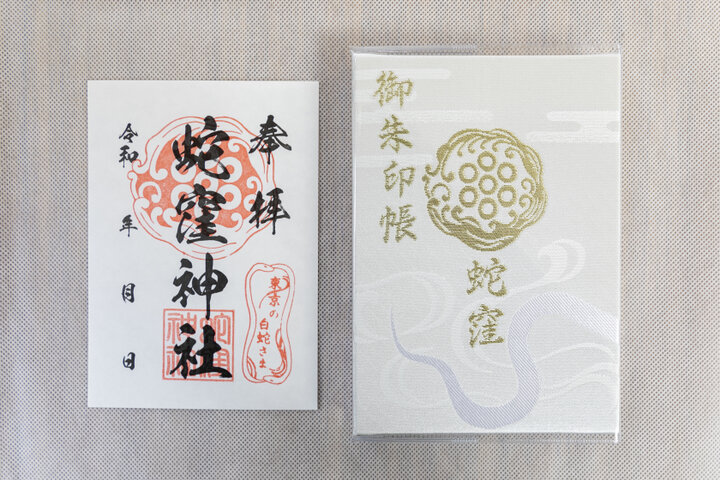 奉拝
蛇窪神社
令和 年 月 日
東京の
白蛇さま
御朱印帳
蛇窪